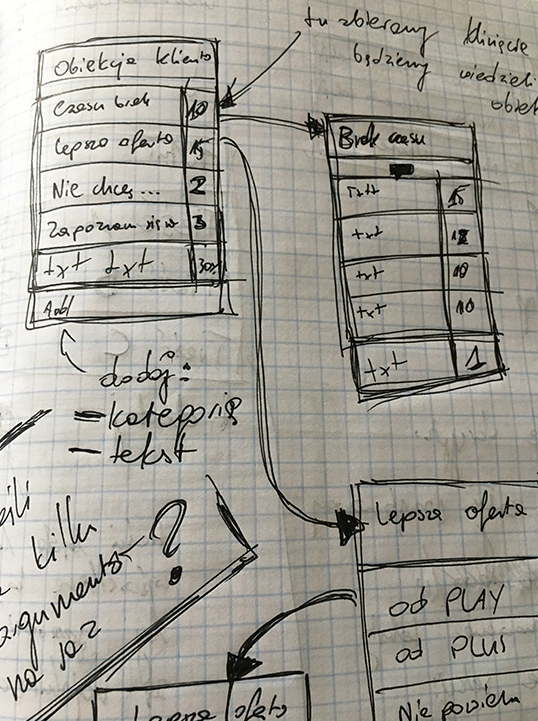 tu zbieramy klinięcie
będziemy wiedzieli
obiek
Obiekcja klienta
Czasu brak 10
Lepsza oferta 15
Nie chcę... 2
Zapoznam się w 3
txt txt 30x
Add
dodaj:
- kategorię
- tekst
Brak czasu
txt 15
txt 12
txt 10
txt 10
txt 1
kilku
argumento
na raz
?
Lepsza oferta
od PLAY
od PLUS
Nie powiem
Lepsza oferta